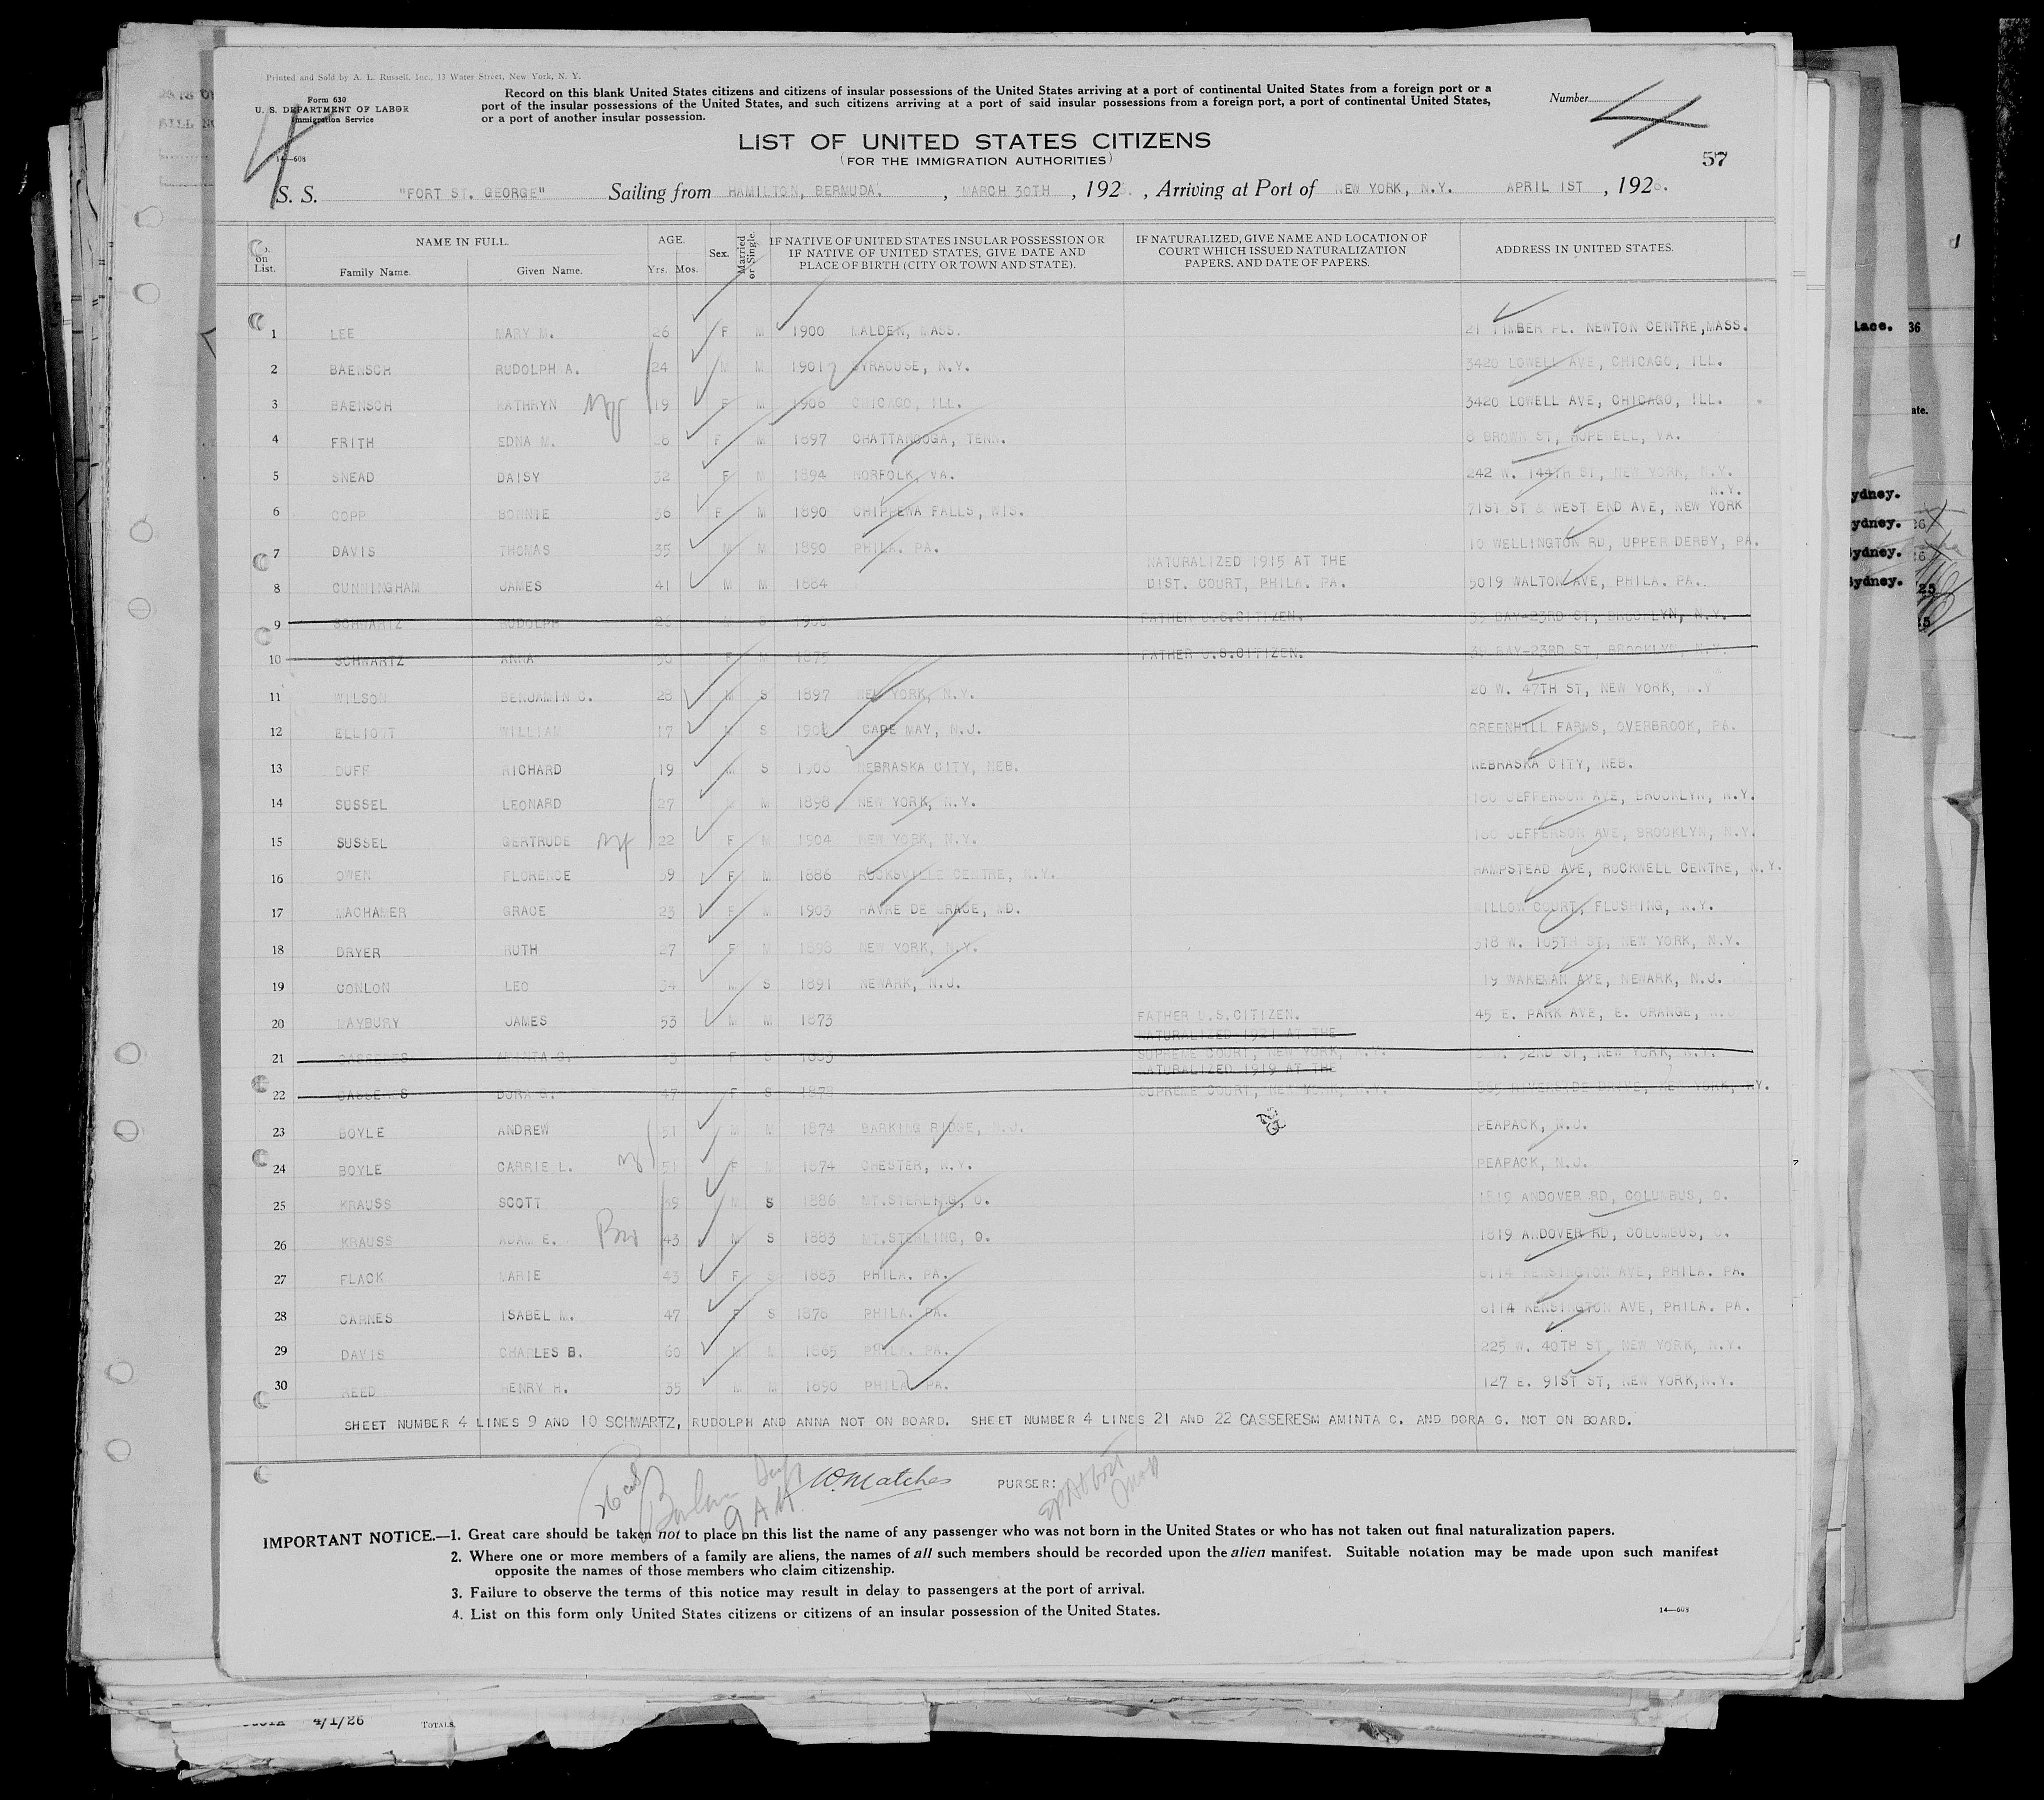 Printed and Sold by A. L. Russell, Inc., 13 Water Street, New York, N. Y.
Form 630
U. S. DEPARTMENT OF LABOR
Immigration Service
14—608
4
Record on this blank United States citizens and citizens of insular possessions of the United States arriving at a port of continental United States from a foreign port or a
port of the insular possessions of the United States, and such citizens arriving at a port of said insular possessions from a foreign port, a port of continental United States,
or a port of another insular possession.
Number 4
LIST OF UNITED STATES CITIZENS
(FOR THE IMMIGRATION AUTHORITIES)
57
S. S. "FORT ST. GEORGE" Sailing from HAMILTON, BERMUDA. , MARCH 30TH , 192 , Arriving at Port of NEW YORK, N.Y. APRIL 1ST , 1926.
No. on List. NAME IN FULL. Family Name. Given Name. AGE. Yrs. Mos. Sex. Married or Single. IF NATIVE OF UNITED STATES INSULAR POSSESSION OR IF NATIVE OF UNITED STATES, GIVE DATE AND PLACE OF BIRTH (CITY OR TOWN AND STATE). IF NATURALIZED, GIVE NAME AND LOCATION OF COURT WHICH ISSUED NATURALIZATION PAPERS, AND DATE OF PAPERS. ADDRESS IN UNITED STATES.
1 LEE MARY M. 26 F M 1900 MALDEN, MASS. 21 TIMBER PL. NEWTON CENTRE,MASS.
2 BAENSCH RUDOLPH A. 24 M M 1901 SYRACUSE, N.Y. 3420 LOWELL AVE, CHICAGO, ILL.
3 BAENSCH KATHRYN 19 F M 1906 CHICAGO, ILL. 3420 LOWELL AVE, CHICAGO, ILL.
4 FRITH EDNA M. 28 F M 1897 CHATTANOOGA, TENN. 8 BROWN ST, HOPEWELL, VA.
5 SNEAD DAISY 32 F M 1894 NORFOLK, VA. 242 W. 144TH ST, NEW YORK, N.Y.
6 COPP BONNIE 36 F M 1890 CHIPPEWA FALLS, WIS. 71ST ST & WEST END AVE, NEW YORK N.Y.
7 DAVIS THOMAS 35 M M 1890 PHILA. PA. 10 WELLINGTON RD, UPPER DERBY, PA.
8 CUNNINGHAM JAMES 41 M M 1884 NATURALIZED 1915 AT THE DIST. COURT, PHILA. PA. 5019 WALTON AVE, PHILA. PA.
9 SCHWARTZ RUDOLPH 26 M S 1900 FATHER U.S.CITIZEN. 39 BAY-23RD ST, BROOKLYN, N.Y.
10 SCHWARTZ ANNA 50 F M 1875 FATHER U.S.CITIZEN. 39 BAY-23RD ST, BROOKLYN, N.Y.
11 WILSON BENJAMIN C. 28 M S 1897 NEW YORK, N.Y. 20 W. 47TH ST, NEW YORK, N.Y
12 ELLIOTT WILLIAM 17 M S 1908 CAPE MAY, N.J. GREENHILL FARMS, OVERBROOK, PA.
13 DUFF RICHARD 19 M S 1906 NEBRASKA CITY, NEB. NEBRASKA CITY, NEB.
14 SUSSEL LEONARD 27 M M 1898 NEW YORK, N.Y. 180 JEFFERSON AVE, BROOKLYN, N.Y.
15 SUSSEL GERTRUDE 22 F M 1904 NEW YORK, N.Y. 180 JEFFERSON AVE, BROOKLYN, N.Y.
16 OWEN FLORENCE 39 F M 1886 ROCKSVILLE CENTRE, N.Y. HAMPSTEAD AVE, ROCKWELL CENTRE, N.Y.
17 MACHAMER GRACE 23 F M 1903 HAVRE DE GRACE, MD. WILLOW COURT, FLUSHING, N.Y.
18 DRYER RUTH 27 F M 1898 NEW YORK, N.Y. 318 W. 105TH ST, NEW YORK, N.Y.
19 CONLON LEO 34 M S 1891 NEWARK, N.J. 19 WAKEMAN AVE, NEWARK, N.J.
20 MAYBURY JAMES 53 M M 1873 FATHER U.S.CITIZEN. 45 E. PARK AVE, E. ORANGE, N.J.
NATURALIZED 1921 AT THE
21 CASSERES AMINTA C. F S SUPREME COURT, NEW YORK, N.Y. 92ND ST, NEW YORK, N.Y.
NATURALIZED 1919 AT THE
22 CASSERES DORA G. 47 F S 1878 SUPREME COURT, NEW YORK, N.Y. RIVERSIDE DRIVE, NEW YORK, NY.
23 BOYLE ANDREW 51 M M 1874 BARKING RIDGE, N.J. PEAPACK, N.J.
24 BOYLE CARRIE L. 51 F M 1874 CHESTER, N.Y. PEAPACK, N.J.
25 KRAUSS SCOTT 39 M S 1886 MT.STERLING, O. 1819 ANDOVER RD, COLUMBUS, O.
26 KRAUSS ADAM E. Bro 43 M S 1883 MT.STERLING, O. 1819 ANDOVER RD, COLUMBUS, O.
27 FLACK MARIE 43 F S 1883 PHILA. PA. 6114 KENSINGTON AVE, PHILA. PA.
28 CARNES ISABEL M. 47 F S 1878 PHILA. PA. 6114 KENSINGTON AVE, PHILA. PA.
29 DAVIS CHARLES B. 60 M M 1865 PHILA. PA. 225 W. 40TH ST, NEW YORK, N.Y.
30 REED HENRY H. 35 M M 1890 PHILA PA. 127 E. 91ST ST, NEW YORK,N.Y.
SHEET NUMBER 4 LINES 9 AND 10 SCHWARTZ, RUDOLPH AND ANNA NOT ON BOARD. SHEET NUMBER 4 LINES 21 AND 22 CASSERESM AMINTA C. AND DORA G. NOT ON BOARD.
W. Matches PURSER:
IMPORTANT NOTICE.—1. Great care should be taken not to place on this list the name of any passenger who was not born in the United States or who has not taken out final naturalization papers.
2. Where one or more members of a family are aliens, the names of all such members should be recorded upon the alien manifest. Suitable notation may be made upon such manifest
opposite the names of those members who claim citizenship.
3. Failure to observe the terms of this notice may result in delay to passengers at the port of arrival.
4. List on this form only United States citizens or citizens of an insular possession of the United States.
14—608
4/1/26 TOTALS
lace. 36
ate.
ydney.
ydney.
ydney.
ydney.